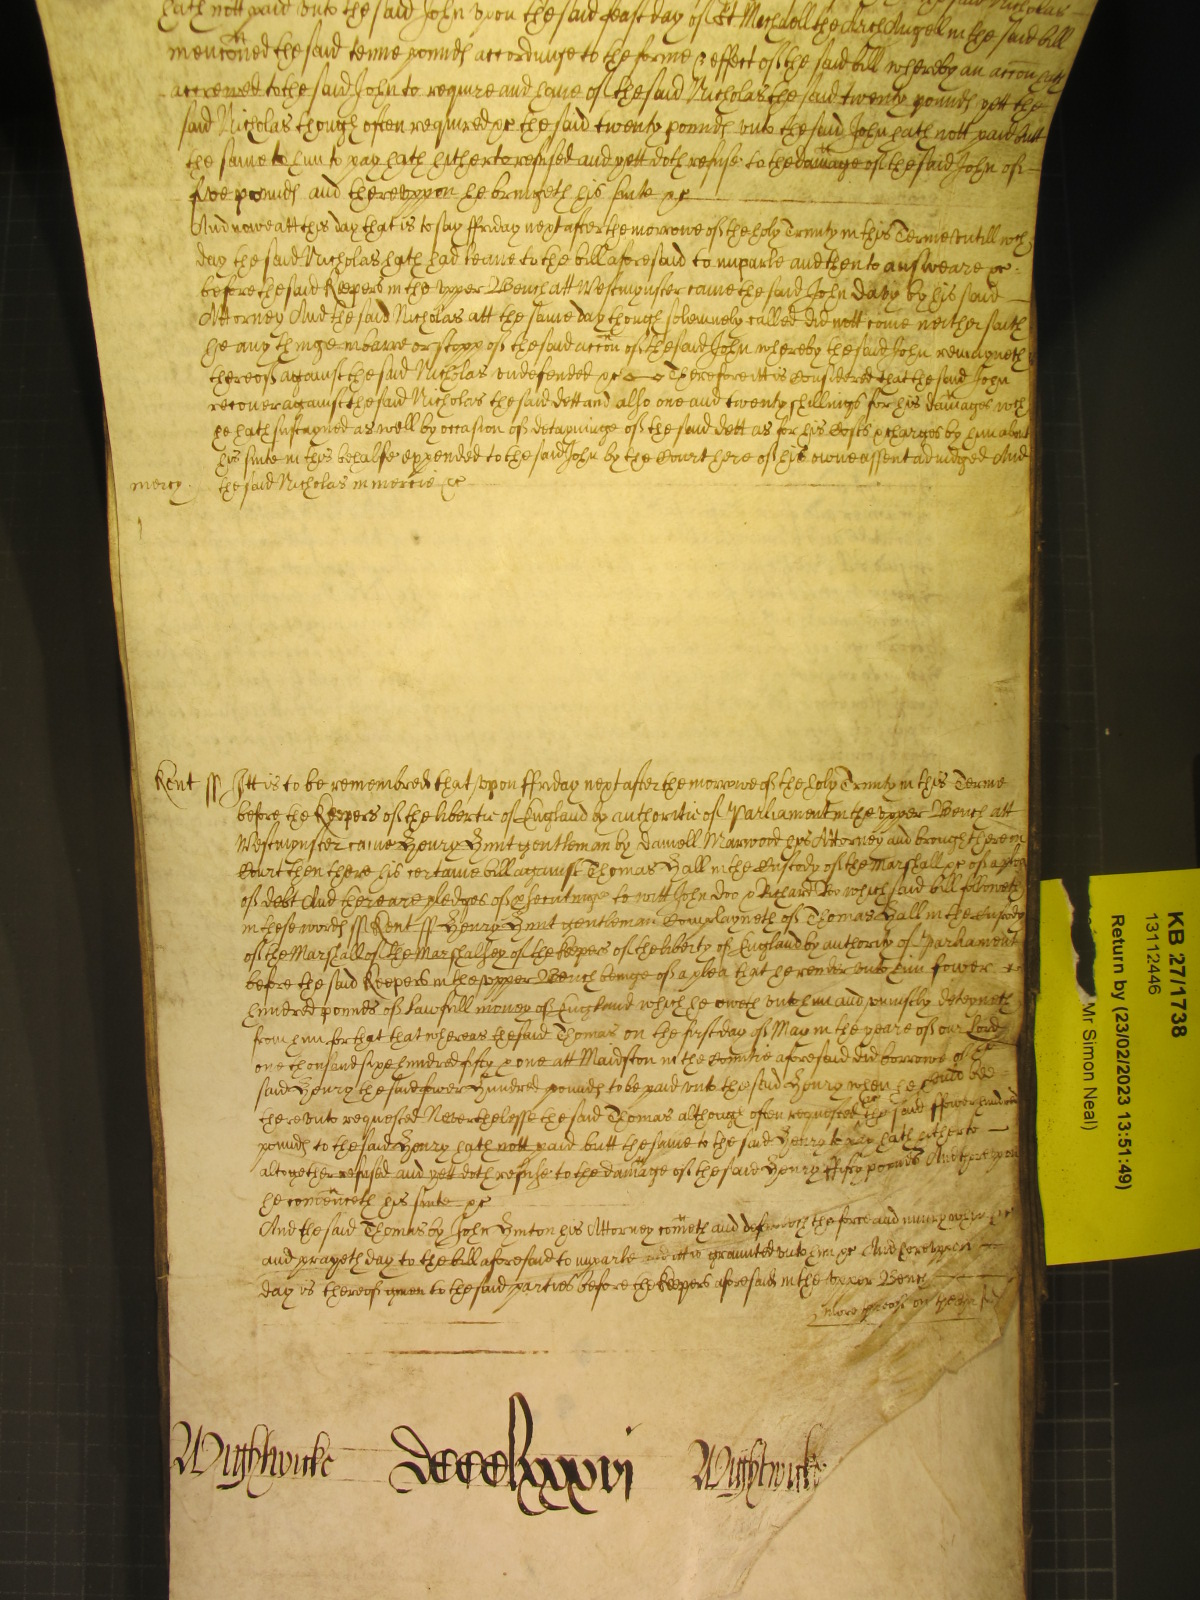 hath nott paid unto the said John upon the said feast day of St Michaell the Archangell in the said bill
menconed the said tenne pounds accordinge to the forme & effect of the said bill whereby an accon hath
accrewed to the said John to require and have of the said Nicholas the said twenty pounds yett the
said Nicholas though often required &c the said twenty pounds unto the said John hath nott paid butt
the same to him to pay hath hitherto refused and yett doth refuse to the damage of the said John of
five pounds and thereuppon he bringeth his suite &c
And nowe att this day that is to say ffriday next after the morrowe of the holy Trinity in this Terme untill wch
day the said Nicholas hath had leave to the bill aforesaid to imparle and then to answeare &c
before the said Keepers in the upper Bench att Westmynster came the said John Davy by his said
Attorney And the said Nicholas att the same day though solemnely called did nott come neither saith
he any thinge in barre or stopp of the said accon of the said John whereby the said John remayneth
thereof against the said Nicholas undefended &c Therefore itt is considered that the said John
recover against the said Nicholas the said dett and also one and twenty shillings for his damages wch
he hath susteyned as well by occasion of detayninge of the said dett as for his costs & charges by him about
his suite in this behalfe expended to the said John by the Court here of his owne assent adiudged And
mercy the said Nicholas in mercie &c
Kent ss Itt is to be remembred that upon ffriday next after the morrowe of the holy Trinity in this Terme
before the Keepers of the libertie of England by authoritie of Parliament in the upper Bench att
Westmynster came Henry Hunt gentleman by Daniell Marwood his Attorney and brought here in
Court then there his certaine bill against Thomas Hall in the Custody of the Marshall &c of a plea
of debt And there are pledges of prosecutinge to witt John Doo & Richard Roo which said bill followeth
in these words ss Kent ss Henry Hunt gentleman Complayneth of Thomas Hall in the Custody
of the Marshall of the Marshalsey of the Keepers of the liberty of England by authority of Parliament
before the said Keepers in the upper Bench beinge of a plea that he render unto him fower
hundred pounds of lawfull money of England which he oweth unto him and uniustly deteyneth
from him for that that whereas the said Thomas on the first day of May in the yeare of our Lord
one thousand six hundred fifty & one att Maidston in the Countie aforesaid did borrowe of the
said Henry the said fower hundred pounds to be paid unto the said Henry when he should be
thereunto requested Neverthelesse the said Thomas although often requested the said ffower hundred
pounds to the said Henry hath nott paid butt the same to the said Henry to pay hath hitherto
altogether refused and yett doth refuse to the damage of the said Henry ffifty pounds And thereupon
he comenceth his suite &c
And the said Thomas by John Hinton his Attorney cometh and defendeth the force and iniury when &c
and prayeth day to the bill aforesaid to imparle and itt is graunted unto him &c And hereuppon
day is thereof given to the said parties before the Keepers aforesaid in the upper Bench
more thereof on the
Wightwicke Dcccclxxxvi Wightwicke
KB 27/1738
13112446
Return by (23/02/2023 13:51:49)
Mr Simon Neal)